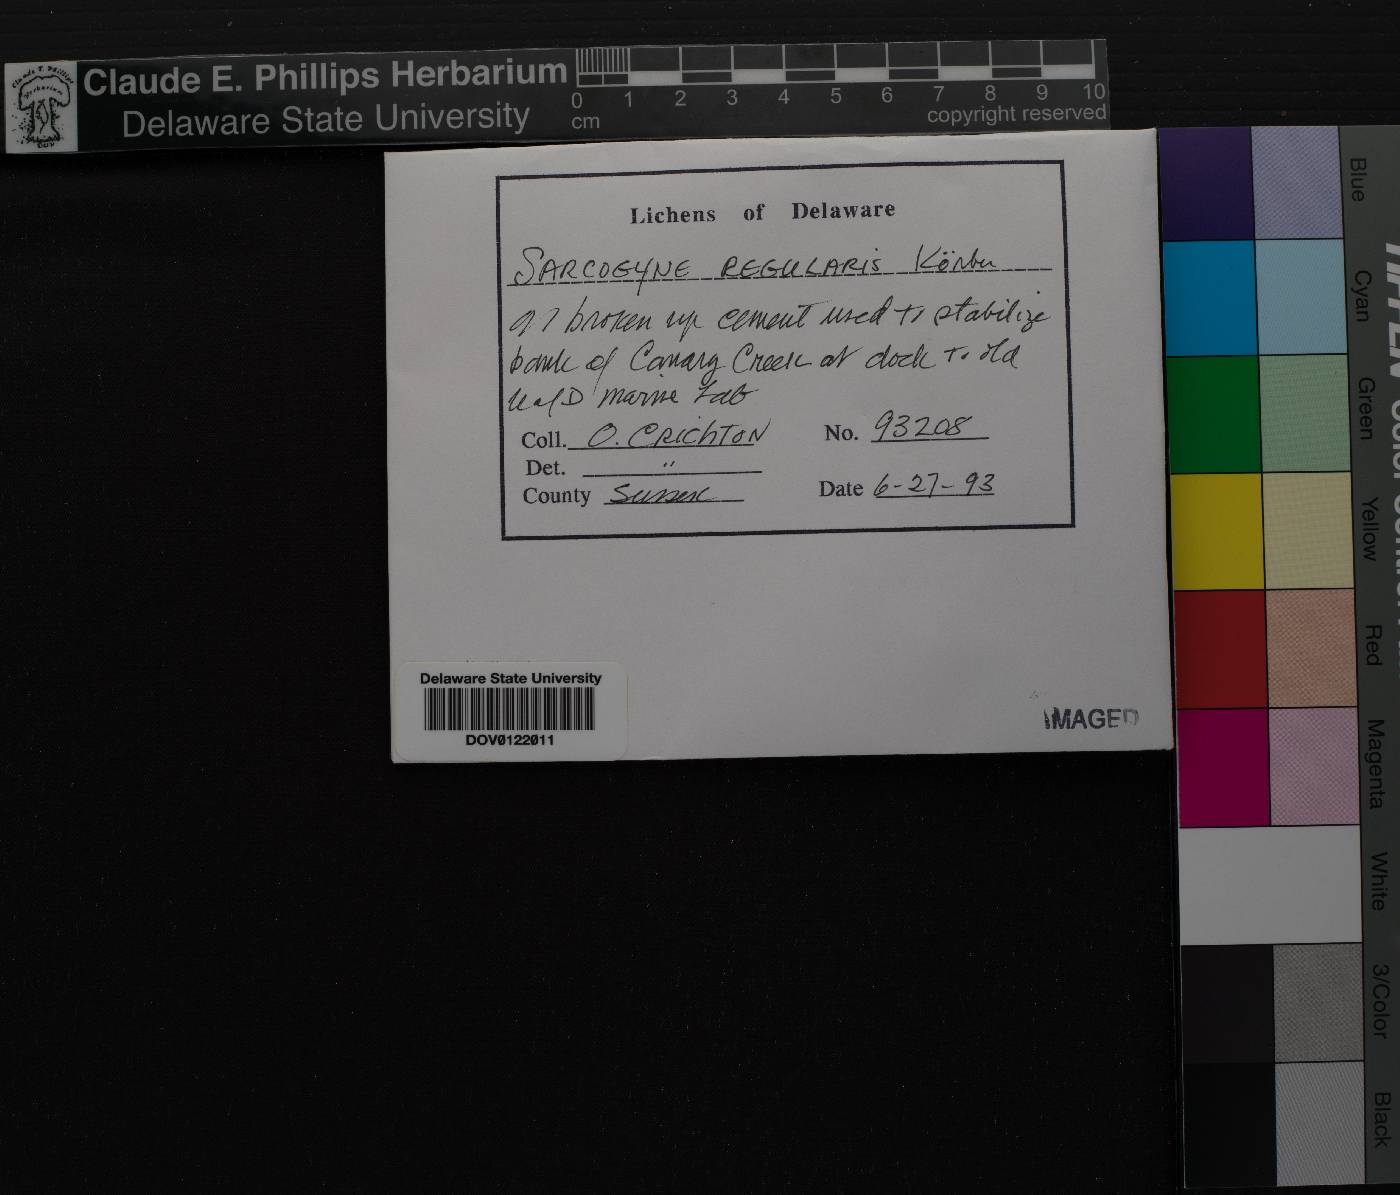 Claude E. Phillips Herbarium
Delaware State University
0 1 2 3 4 5 6 7 8 9 10
cm
copyright reserved
Lichens of Delaware
SARCOGYNE REGULARIS Körber
broken up cement used to stabilize
bank of Canary Creek at dock to old
U of D Marine Lab
Coll. O. CRICHTON No. 93208
Det. "
County Sussex Date 6-27-93
Delaware State University
DOV0122011
IMAGED
Blue
Cyan
Green
Yellow
Red
Magenta
White
3/Color
Black